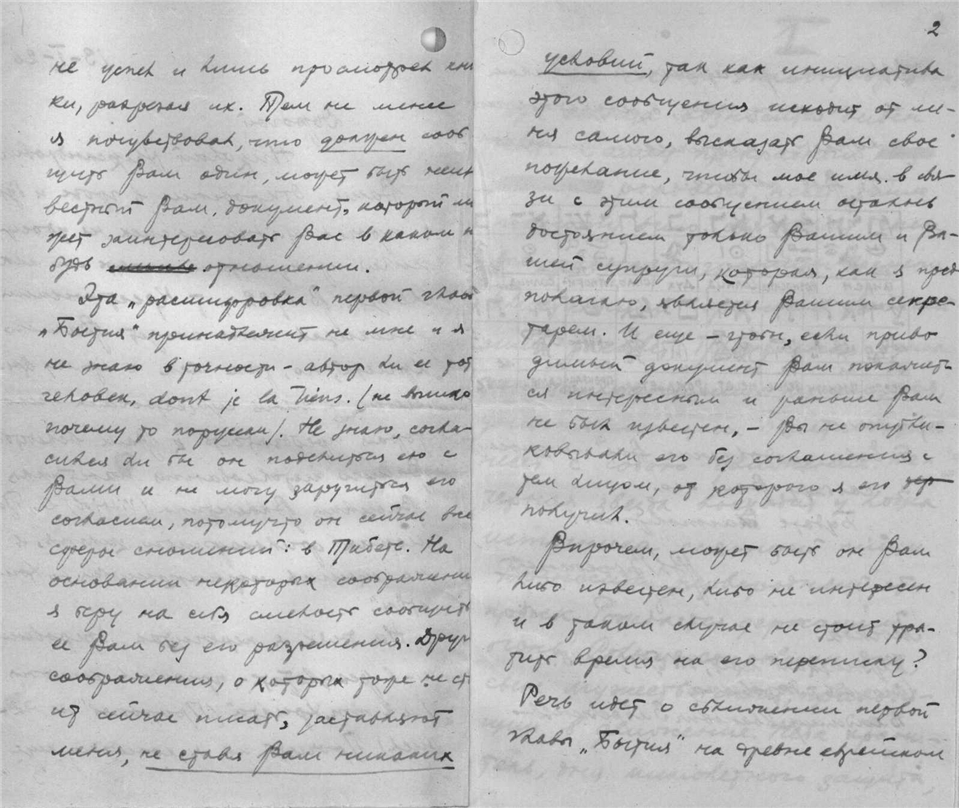 не успел и лишь просмотрел кни
ки, разрезая их. Тем не менее
я почувствовал, что должен сооб
щить Вам один, может быть неиз
вестный Вам, документ, который мо
жет заинтересовать Вас в каком н
будь отношении.
Эта „расшифровка" первой главы
„Бытия" принадлежит не мне и я
не знаю в точности – автор ли ее тот
человек, dont je la tiens. (не вышло
почему то по русски). Не знаю, согла-
сился ли бы он поделиться ею с
Вами и не могу заручиться его
согласием, потому что он сейчас вне
сферы сношений: в Тибете. На
основании некоторых соображений
я беру на себя смелость сообщить
ее Вам без его разрешения. Други
соображения, о которых тоже не сто
ит сейчас писать, заставляют
меня, не ставя Вам никаких
2
условий, так как инициатива
этого сообщения исходит от ме-
ня самого, высказать Вам свое
пожелание, чтобы мое имя в свя
зи с этим сообщением осталось
достоянием только Вашим и Ва-
шей супруги, которая, как я пред
полагаю, является Вашим секре-
тарем. И еще – чтобы, если приво
димый документ Вам покажет-
ся интересным и раньше Вам
не был известен, – Вы не опубли-
ковывали его без соглашения с
тем лицом, от которого я его
получил.
Впрочем, может быть он Вам
либо известен, либо не интересен
и в таком случае не стоит тра-
тить время на его переписку?
Речь идет о свложении первой
главы „Бытия" на древне еврейском